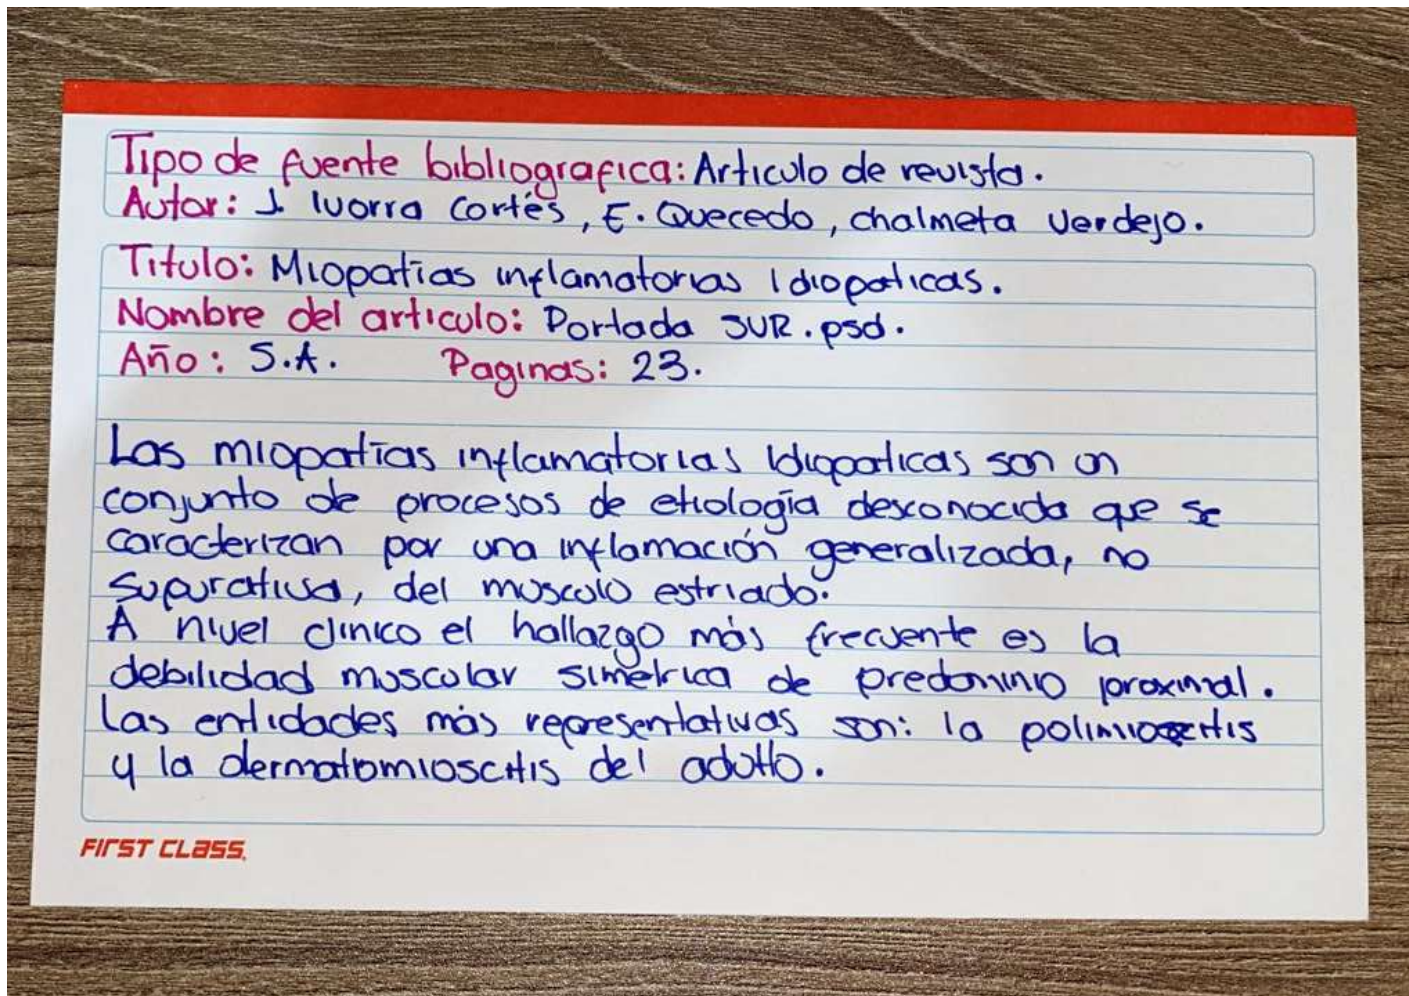 Tipo de fuente bibliografica: Articulo de revista.
Autor: J. Ivorra Cortés, E. Quecedo, chalmeta Verdejo.
Titulo: Miopatías inflamatorias Idiopaticas.
Nombre del articulo: Portada SUR.psd.
Año: S.A. Paginas: 23.
Las miopatías inflamatorias Idiopaticas son un
conjunto de procesos de etiología desconocida que se
caracterizan por una inflamación generalizada, no
supurativa, del musculo estriado.
A nivel clinico el hallazgo más frecuente es la
debilidad muscular simétrica de predominio proximal.
Las entidades más representativas son: la polimiositis
y la dermatomioscitis del adulto.
FIRST CLASS.